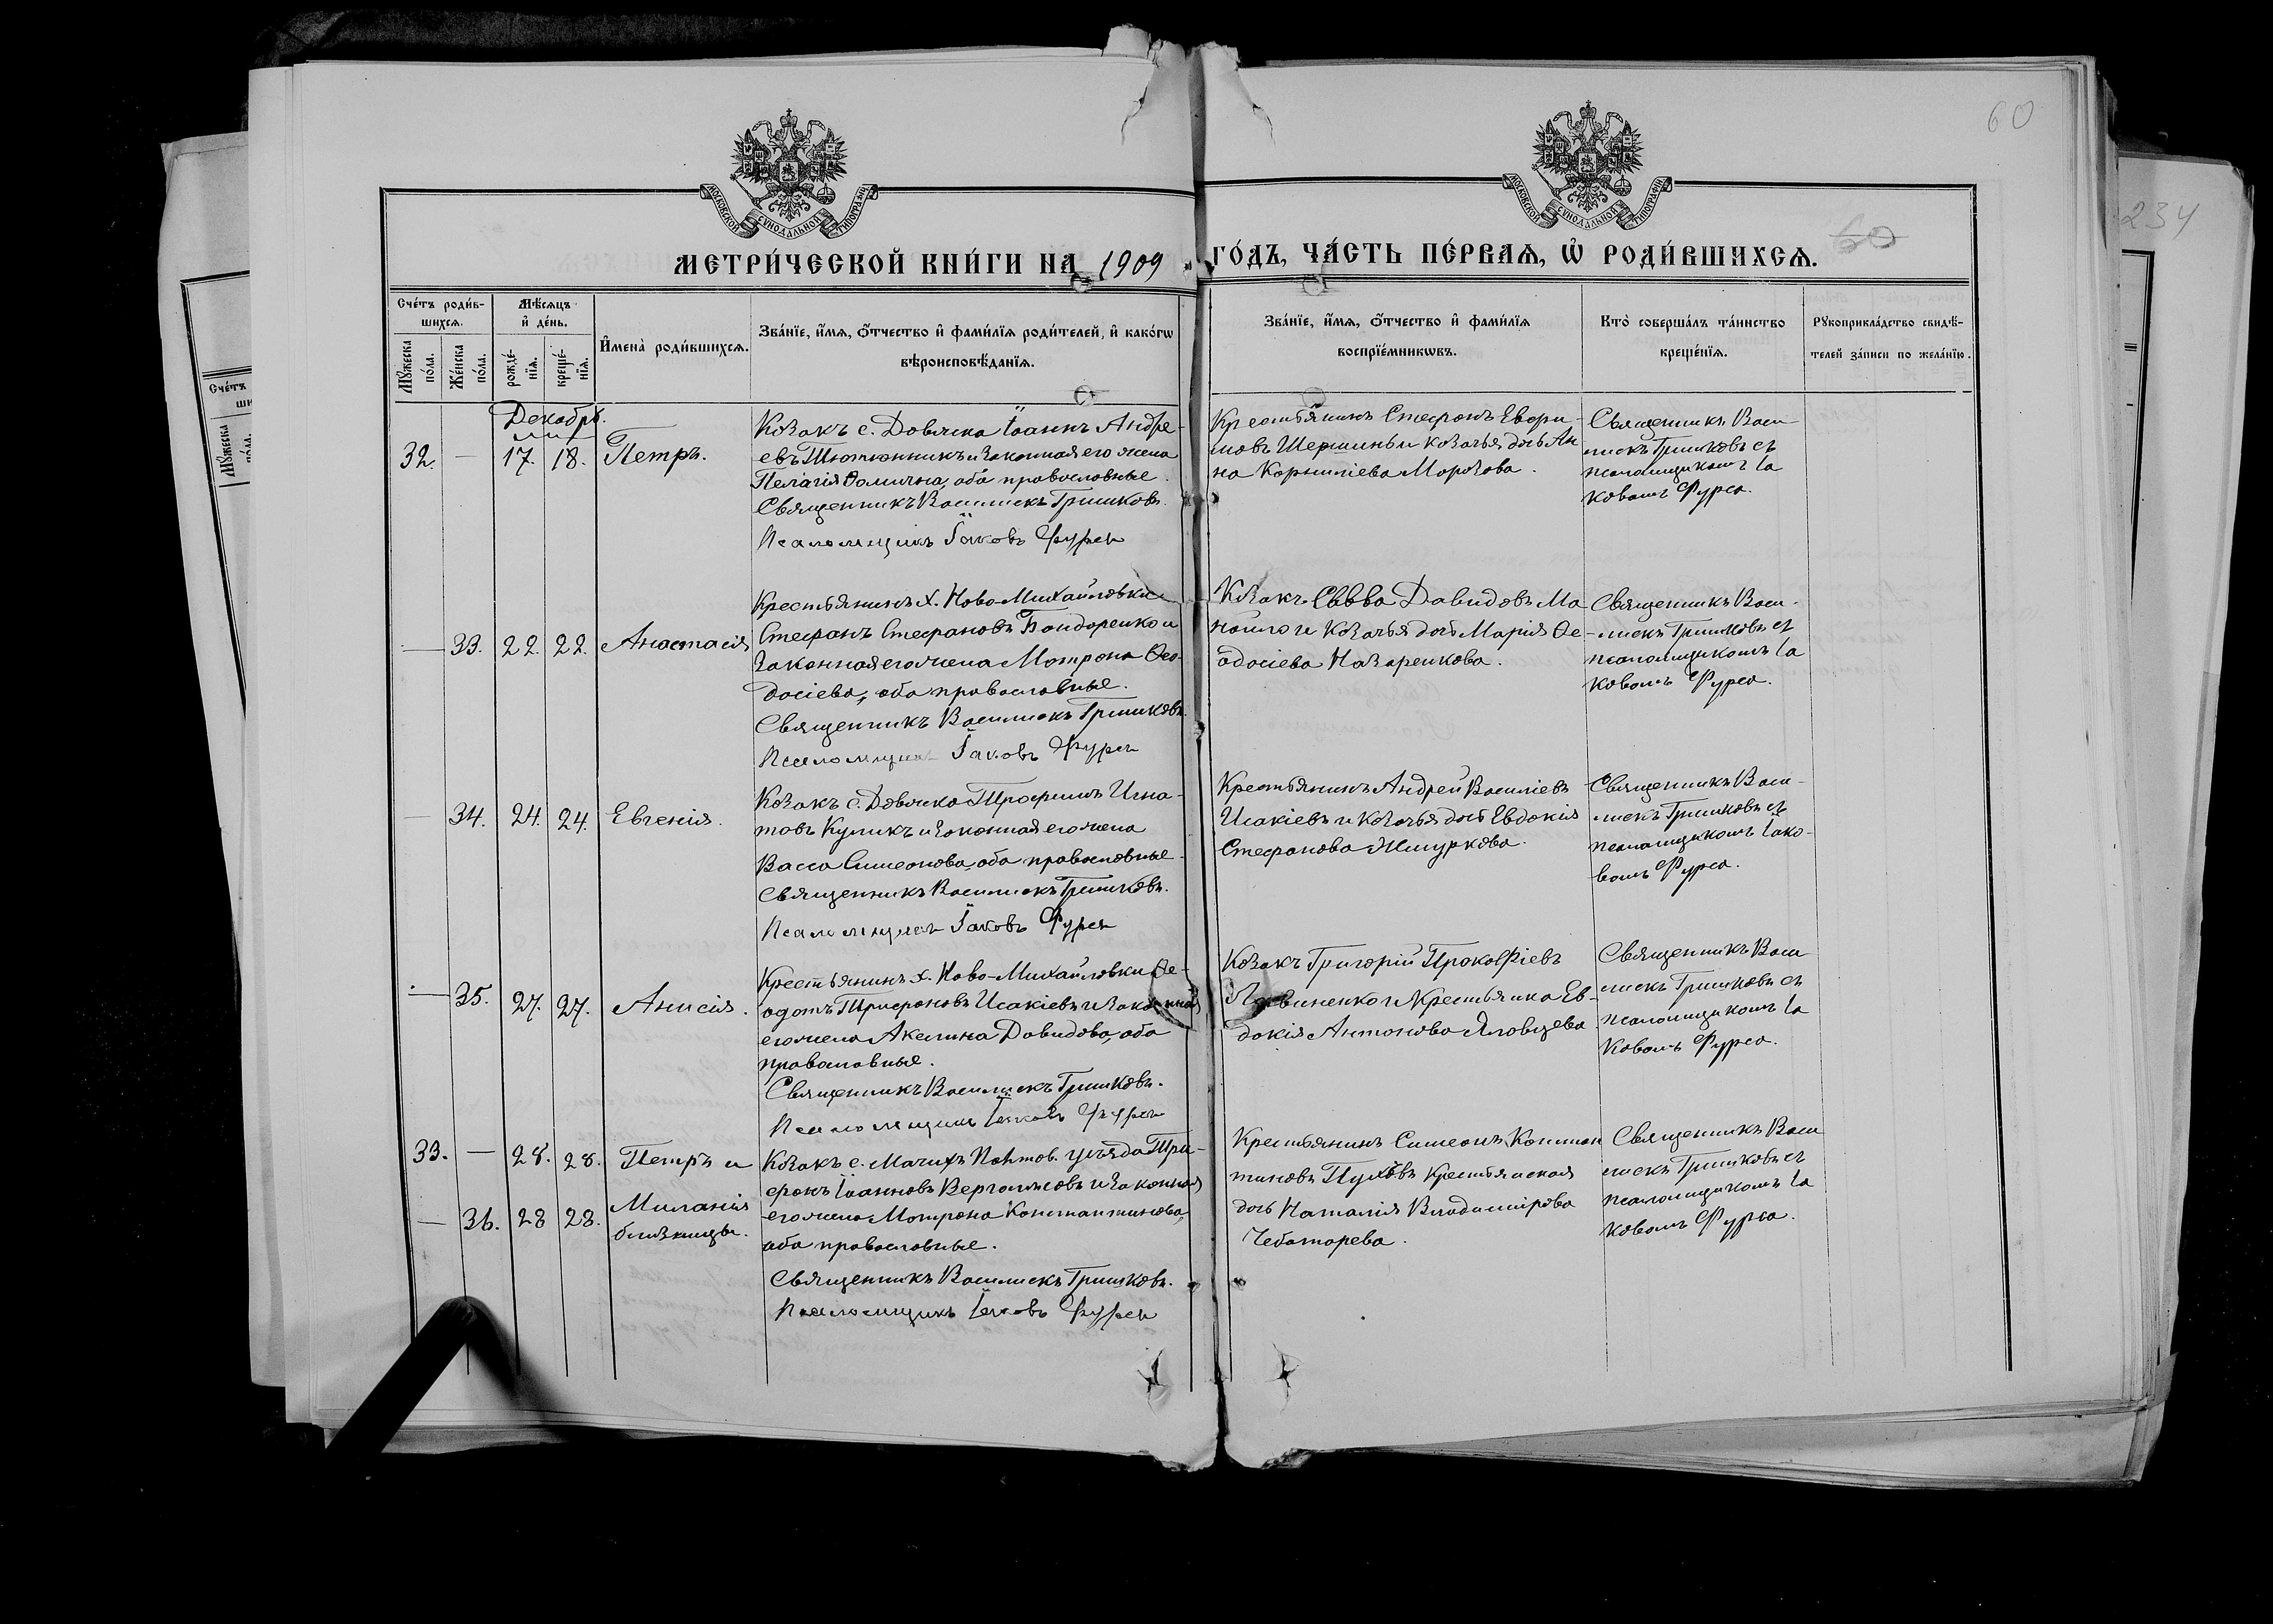 60
234
МОСКОВСКОЙ СѴНОДАЛЬНОЙ ТИПОГРАФІИ
МОСКОВСКОЙ СѴНОДАЛЬНОЙ ТИПОГРАФІИ
60
МЕТРИ́ЧЕСКОЙ КНИ́ГИ НА 1909 ГО́ДЪ, ЧА́СТЬ ПЕ́РВАѦ, Ѽ РОДИ́ВШИХСѦ.
Сче́тъ роди́в-
шихсѧ.
Мꙋ́жеска по́ла.
Же́нска по́ла.
Мѣ́сѧцъ
и҆ де́нь.
рожде́-
нїѧ.
креще́-
нїѧ.
И҆мена̀ роди́вшихсѧ.
Зва́нїе, и҆́мѧ, ѻ҆́тчество и҆ фами́лїѧ роди́телей, и҆ како́гѡ
вѣроисповѣ́данїѧ.
Зва́нїе, и҆́мѧ, ѻ҆́тчество и҆ фами́лїѧ
воспрїе́мникѡвъ.
Кто̀ соверша́лъ та́инство
креще́нїѧ.
Рꙋкоприкла́дство свидѣ́-
телей за́писи по жела́нїю.
Декабрь.
32. — 17. 18. Петръ.
Козакъ с. Довжека Іоаннъ Андре-
евъ и законная его жена
Пелагія Ѳомична, оба православные.
Священникъ Василискъ Гришковъ.
Псаломщикъ Іаковъ Фурса
Крестьянинъ Стефанъ Евфи-
мовъ и козачья дочь Ан
на Корниліева Морозова.
Священникъ Васи-
лискъ Гришковъ съ
псаломщикомъ Іа
ковомъ Фурса.
— 33. 22. 22. Анастасія
Крестьянинъ х. Ново-Михайловки
Стефанъ Стефановъ Бондаренко и
законная его жена Матрона Ѳео-
досіева, оба православные.
Священникъ Василискъ Гришковъ.
Псаломщикъ Іаковъ Фурса
Козакъ Савва Давидовъ Ма
нойло и козачья дочь Марія Ѳе-
одосіева Назаренкова.
Священникъ Васи-
лискъ Гришковъ съ
псаломщикомъ Іа
ковомъ Фурса.
— 34. 24. 24. Евгенія.
Козакъ с. Довжека Трофимъ Игна-
товъ Куликъ и законная его жена
Васса Симеонова, оба православные.
Священникъ Василискъ Гришковъ.
Псаломщикъ Іаковъ Фурса
Крестьянинъ Андрей Василіевъ
Исакіевъ и козачья дочь Евдокія
Стефанова Жмуркова.
Священникъ Васи-
лискъ Гришковъ съ
псаломщикомъ Іако-
вомъ Фурса.
— 35. 27. 27. Анисія.
Крестьянинъ х. Ново-Михайловки Ѳе-
одотъ Трифоновъ Исакіевъ и законная
его жена Акилина Давидова, оба
православные.
Священникъ Василискъ Гришковъ.
Псаломщикъ Іаковъ Фурса
Козакъ Григорій Прокофіевъ
и крестьянка Ев-
докія Антонова Яловцева
Священникъ Васи
лискъ Гришковъ съ
псаломщикомъ Іа
ковомъ Фурса.
33. — 28. 28. Петръ и
— 36. 28 28. Миланія
близнецы.
Козакъ с. Мачихъ Полтов. уѣзда Три-
фонъ Іоанновъ и законная
его жена Матрона Константинова,
оба православные.
Священникъ Василискъ Гришковъ.
Псаломщикъ Іаковъ Фурса
Крестьянинъ Симеонъ Констан
тиновъ Пуховъ крестьянская
дочь Наталія Владимірова
Чеботарева.
Священникъ Васи
лискъ Гришковъ съ
псаломщикомъ Іа
ковомъ Фурса.